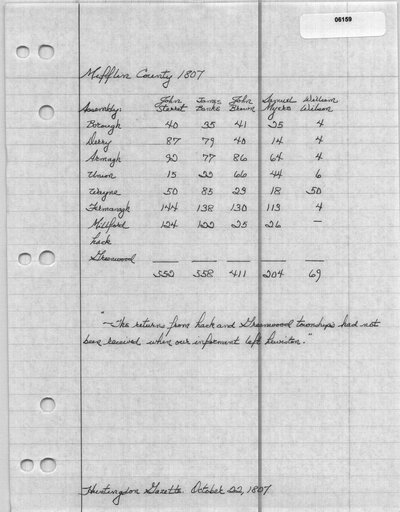 06159
Mifflin County 1807
John James John Samuel William
Assembly: Sterret Banks Brown Myers Wilson
Borough 40 35 41 25 4
Derry 87 79 40 14 4
Armagh 92 77 86 64 4
Union 15 22 66 44 6
Wayne 50 85 23 18 50
Fermanagh 144 138 130 113 4
Millford 124 122 25 26 —
Lack
Greenwood
552 558 411 204 69
"—The returns from Lack and Greenwood townships had not
been received when our informent left Lewiston."
Huntingdon Gazette October 22, 1807